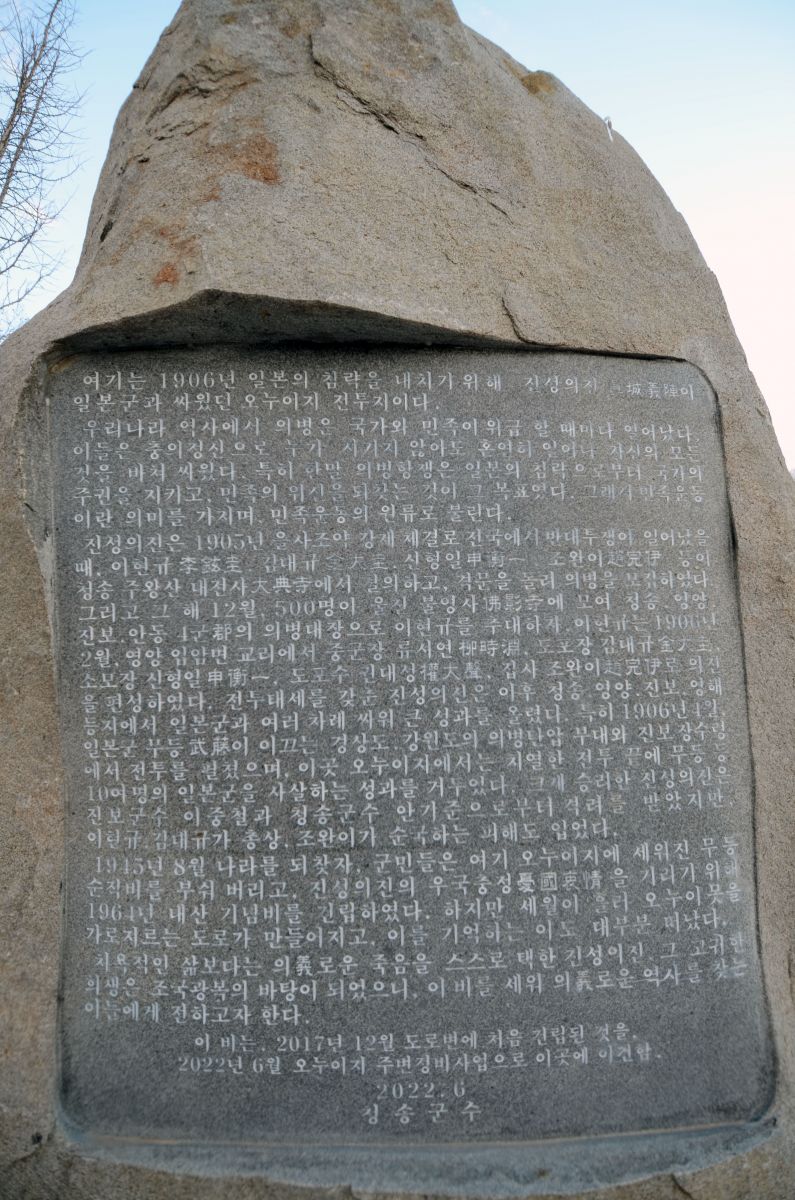 여기는 1906년 일본의 침략을 내치기위해 진성의진 城義陣이
일본군과 싸웠던 오누이지 전투지이다.
우리나라 역사에서 의병은 국가와 민족이위급 할 때마다 일어났다.
이들은 충의정신으로 누가 시키지 않아도 혼연히 일어나 자신의 모든
것을 바쳐 싸웠다. 특히 한말 의병항쟁은 일본의 침략으로부터 국가의
주권을 지키고, 민족의 위신을 되찾는 것이 그 목표였다. 그래서 민족운동
이란 의미를 가지며, 민족운동의 원류로 불린다.
진성의진은 1905년 을사조약 강제 체결로 전국에서 반대투쟁이 일어났을
때, 이현규 李鉉圭, 김대규 金大圭, 신형일申衡一, 조완이趙完伊 등이
청송 주왕산 대전사大典寺에서 결의하고, 격문을 돌려 의병을 모집하였다.
그리고 그 해 12월, 500명이 울진 불영사佛影寺에 모여 청송, 영양,
진보, 안동 4군郡의 의병대장으로 이현규를 추대하자, 이현규는 1906년
2월, 영양 입암면 교리에서 중군장 류시연柳時淵, 도포장 김대규金大圭,
소모장 신형일申衡一, 도포수 권대성權大聲, 집사 조완이趙完伊로 의진
을 편성하였다. 전투대세를 갖춘 진성의진은 이후 청송 영양, 진보, 영해
등지에서 일본군과 여러 차례 싸워 큰 성과를 올렸다. 특히 1906년 4월,
일본군 무등武藤이 이끄는 경상도, 강원도의 의병탄압 부대와 진보장수령
에서 전투를 펼쳤으며, 이곳 오누이지에서는 치열한 전투 끝에 무등 등
10여명의 일본군을 사살하는 성과를 거두었다. 크게 승리한 진성의진은
진보군수 이중철과 청송군수 안기준으로부터 격려를 받았지만
이현규 김대규가 총상, 조완이가 순국하는 피해도 입었다.
1945년 8월 나라를 되찾자, 군민들은 여기 오누이지에 세워진 무등
순직비를 부숴 버리고, 진성의진의 우국충성憂國衷情을 기리기 위해
1964년 대산 기념비를 건립하였다. 하지만 세월이 흘러 오누이못을
가로지르는 도로가 만들어지고, 이를 기억하는 이도 대부분 떠났다.
치욕적인 삶보다는 의義로운 죽음을 스스로 택한 진성의진 그 고귀한
희생은 조국광복의 바탕이 되었으니, 이 비를 세워 의義로운 역사를 찾는
이들에게 전하고자 한다.
이 비는, 2017년 12월 도로변에 처음 건립된 것을,
2022년 6월 오누이지 주변정비사업으로 이곳에 이건함.
2022. 6
청송군수